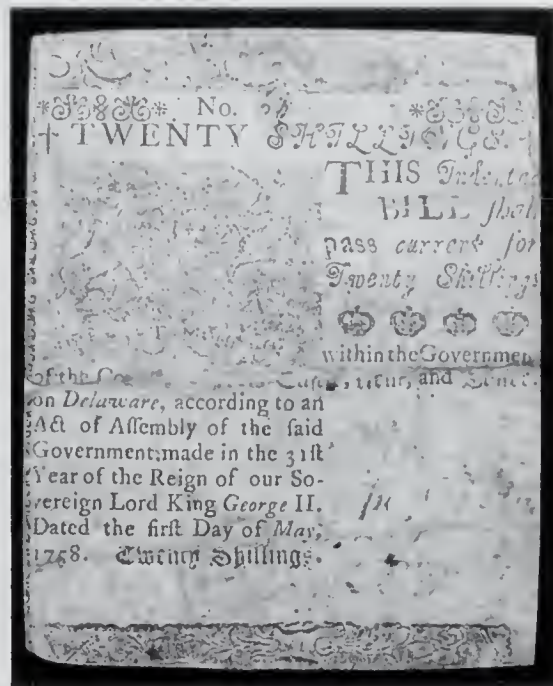 No.
†TWENTY SHILLINGS.
THIS Indented
BILL ſhall
paſs current for
Twenty Shillings
within the Governmen
of the and
on Delaware, according to an
Act of Aſſembly of the ſaid
Government; made in the 31ſt
Year of the Reign of our So-
vereign Lord King George II.
Dated the firſt Day of May,
1758. Twenty Shillings.